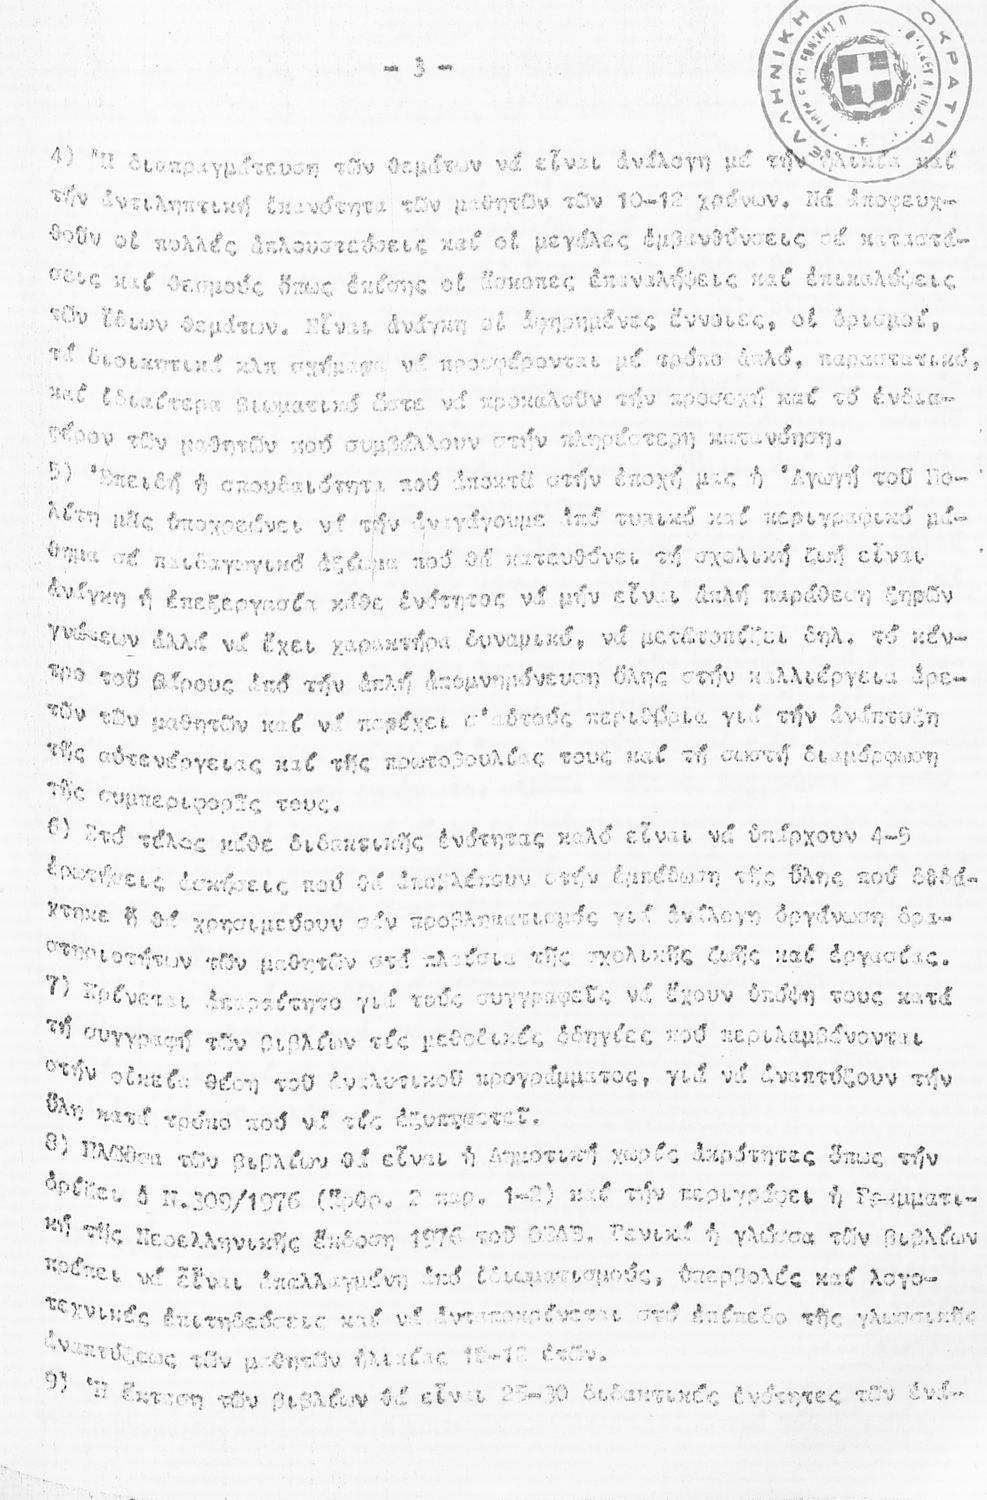 - 3 -
ΕΛΛΗΝΙΚΗ ΔΗΜΟΚΡΑΤΙΑ
4) Ἡ διαπραγμάτευση τῶν θεμάτων νά εἶναι ἀνάλογη μέ τήν ἡλικία καί
τήν ἀντιληπτική ἱκανότητα τῶν μαθητῶν τῶν 10-12 χρόνων. Νά ἀποφευχ-
θοῦν οἱ πολλές ἁπλουστεύσεις καί οἱ μεγάλες ἐμβανθύνσεις σέ καταστά-
σεις καί θεσμούς ὅπως ἐπίσης οἱ ἄσκοπες ἐπαναλήψεις καί ἐπικαλύψεις
τῶν ἴδιων θεμάτων. Εἶναι ἀνάγκη οἱ ἀφηρημένες ἔννοιες, οἱ ὁρισμοί,
τά διοικητικά κλπ σχήματα νά προσφέρονται μέ τρόπο ἁπλό, παραστατικό,
καί ἰδιαίτερα βιωματικό ὥστε νά προκαλοῦν τήν προσοχή καί τό ἐνδια-
φέρον τῶν μαθητῶν πού συμβάλλουν στήν πληρέστερη κατανόηση.
5) Ἐπειδή ἡ σπουδαιότητα πού ἀποκτᾶ στήν ἐποχή μας ἡ Ἀγωγή τοῦ Πο-
λίτη μᾶς ὑποχρεώνει νά τήν ἀναγάγουμε ἀπό τυπικό καί περιγραφικό μά-
θημα σέ παιδαγωγικό ἀξίωμα πού θά κατευθύνει τή σχολική ζωή εἶναι
ἀνάγκη ἡ ἐπεξεργασία κάθε ἑνότητος νά μήν εἶναι ἁπλή παράθεση ξηρῶν
γνώσεων ἀλλά νά ἔχει χαρακτήρα δυναμικό, νά μετατοπίζει δηλ. τό κέν-
τρο τοῦ βάρους ἀπό τήν ἁπλή ἀπομνημόνευση ὕλης στήν καλλιέργεια ἀρε-
τῶν τῶν μαθητῶν καί νά παρέχει σ'αὐτούς περιθώρια γιά τήν ἀνάπτυξη
τῆς αὐτενέργειας καί τῆς πρωτοβουλίας τους καί τή σωστή διαμόρφωση
τῆς συμπεριφορᾶς τους.
6) Στό τέλος κάθε διδακτικῆς ἑνότητας καλό εἶναι νά ὑπάρχουν 4-5
ἐρωτήσεις ἀσκήσεις πού θά ἀποβλέπουν στήν ἐμπέδωση τῆς ὕλης πού διδά-
χτηκε ἤ θά χρησιμεύουν σάν προβληματισμός γιά ἀνάλογη ὀργάνωση δρα-
στηριοτήτων τῶν μαθητῶν στά πλαίσια τῆς σχολικῆς ζωῆς καί ἐργασίας.
7) Κρίνεται ἀπαραίτητο γιά τούς συγγραφεῖς νά ἔχουν ὑπόψη τους κατά
τή συγγραφή τῶν βιβλίων τίς μεθοδικές ὁδηγίες πού περιλαμβάνονται
στήν οἰκεία θέση τοῦ ἀναλυτικοῦ προγράμματος, γιά νά ἀναπτύξουν τήν
ὕλη κατά τρόπο πού νά τίς ἐξυπηρετεῖ.
8) Γλώσσα τῶν βιβλίων θά εἶναι ἡ Δημοτική χωρίς ἀκρότητες ὅπως τήν
ὁρίζει ὁ Ν.309/1976 (ἄρθρ. 2 παρ. 1-2) καί τήν περιγράφει ἡ Γραμματι-
κή τῆς Νεοελληνικῆς ἔκδοση 1976 τοῦ ΟΕΔΒ. Γενικά ἡ γλώσσα τῶν βιβλίων
πρέπει νά εἶναι ἀπαλλαγμένη ἀπό ἰδιωματισμούς, ὑπερβολές καί λογο-
τεχνικές ἐπιτηδεύσεις καί νά ἀνταποκρίνεται στό ἐπίπεδο τῆς γλωσσικῆς
ἀναπτύξεως τῶν μαθητῶν ἡλικίας 10-12 ἐτῶν.
9) Ἡ ἔκταση τῶν βιβλίων θά εἶναι 25-30 διδακτικές ἑνότητες τῶν ἀνά-